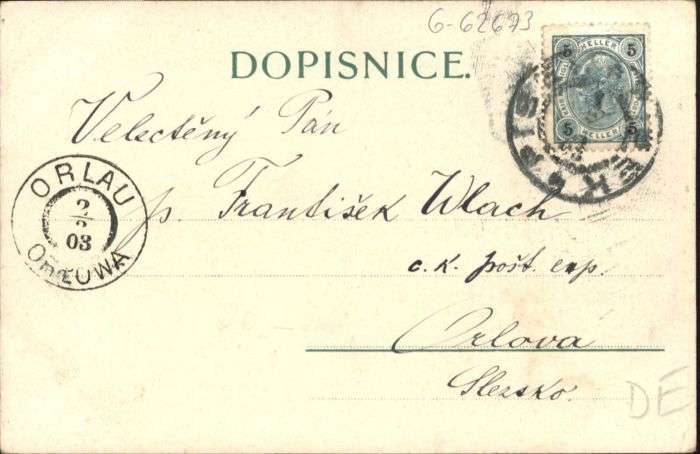 G-62673
DOPISNICE.
5 HELLER 5
5 HELLER 5
Velectěný Pán
p. František Wlach
c. k. pošt. exp.
Orlová
Slezsko.
ORLAU
2
03
ORLOWA
DĚ